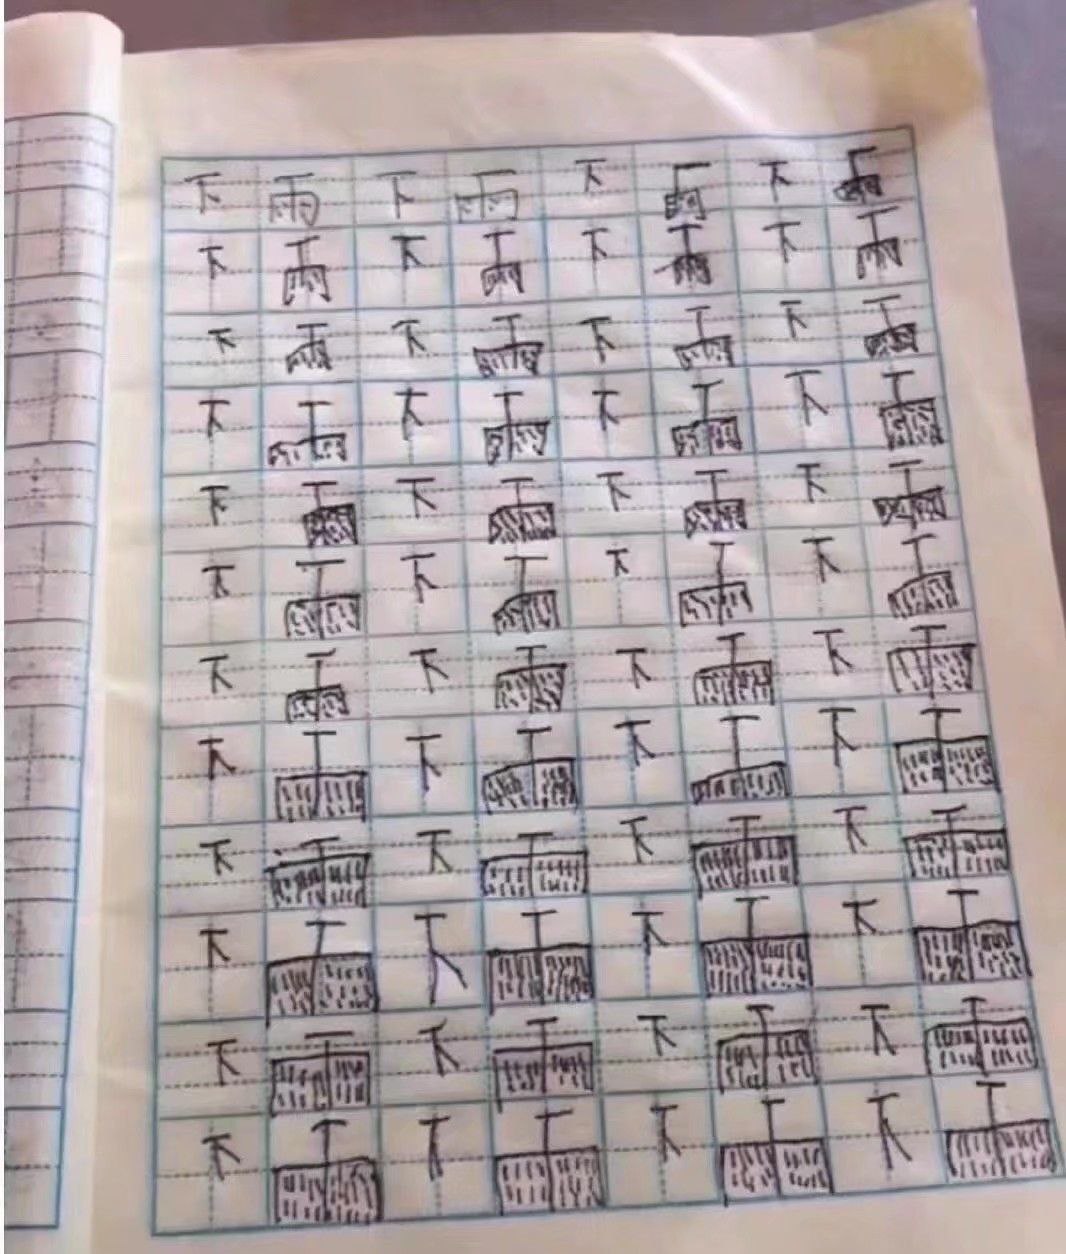 下雨下雨下雨下雨
下雨下雨下雨下雨
下雨下雨下雨下雨
下雨下雨下雨下雨
下雨下雨下雨下雨
下雨下雨下雨下雨
下雨下雨下雨下雨
下雨下雨下雨下雨
下雨下雨下雨下雨
下雨下雨下雨下雨
下雨下雨下雨下雨
下雨下雨下雨下雨